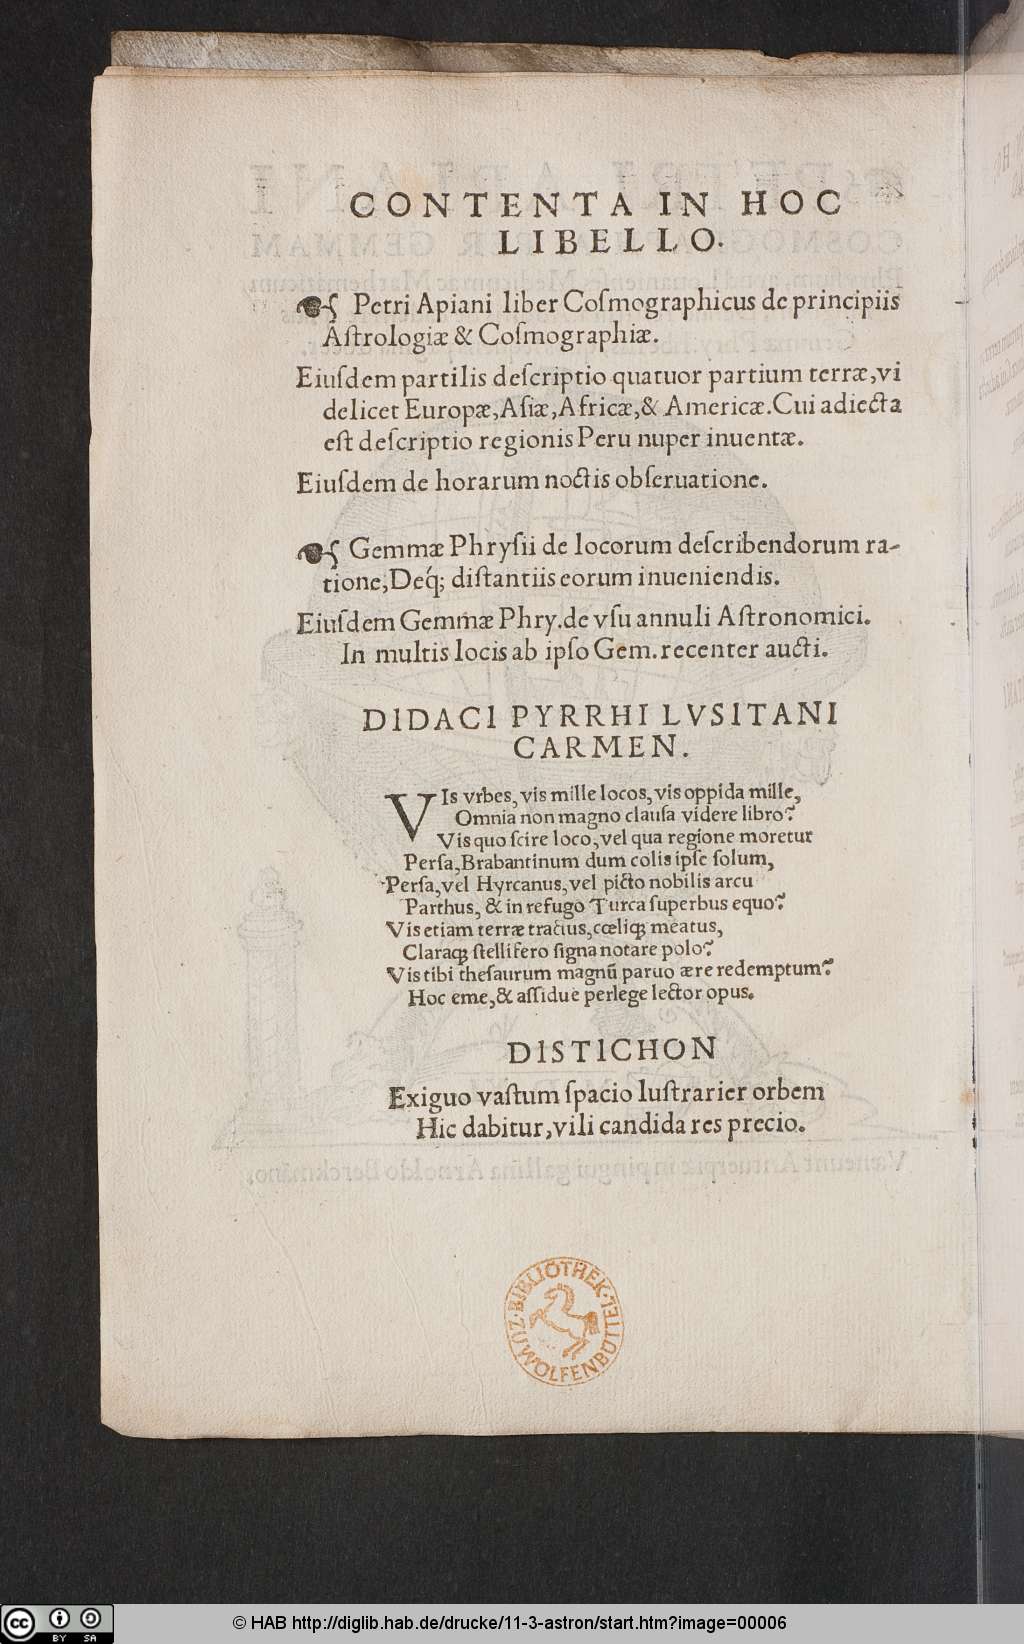 CONTENTA IN HOC
LIBELLO.
Petri Apiani liber Coſmographicus de principiis
Aſtrologiæ & Coſmographiæ.
Eiuſdem partilis deſcriptio quatuor partium terræ, vi
delicet Europæ, Aſiæ, Africæ, & Americæ. Cui adiecta
eſt deſcriptio regionis Peru nuper inuentæ.
Eiuſdem de horarum noctis obſeruatione.
Gemmæ Phryſii de locorum deſcribendorum ra-
tione, Deq́; diſtantiis eorum inueniendis.
Eiuſdem Gemmæ Phry. de vſu annuli Aſtronomici.
In multis locis ab ipſo Gem. recenter aucti.
DIDACI PYRRHI LVSITANI
CARMEN.
VIs vrbes, vis mille locos, vis oppida mille,
Omnia non magno clauſa videre libro?
Vis quo ſcire loco, vel qua regione moretur
Perſa, Brabantinum dum colis ipſe ſolum,
Perſa, vel Hyrcanus, vel picto nobilis arcu
Parthus, & in refugo Turca ſuperbus equo?
Vis etiam terræ tractus, cœliq; meatus,
Claraq; ſtellifero ſigna notare polo?
Vis tibi theſaurum magnū paruo ære redemptum?
Hoc eme, & aſſidue perlege lector opus.
DISTICHON
Exiguo vaſtum ſpacio luſtrarier orbem
Hic dabitur, vili candida res precio.
BIBLIOTHEK
Z. WOLFENBÜTTEL
CC BY SA
© HAB http://diglib.hab.de/drucke/11-3-astron/start.htm?image=00006